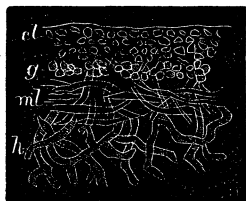 ct
g
ml
h